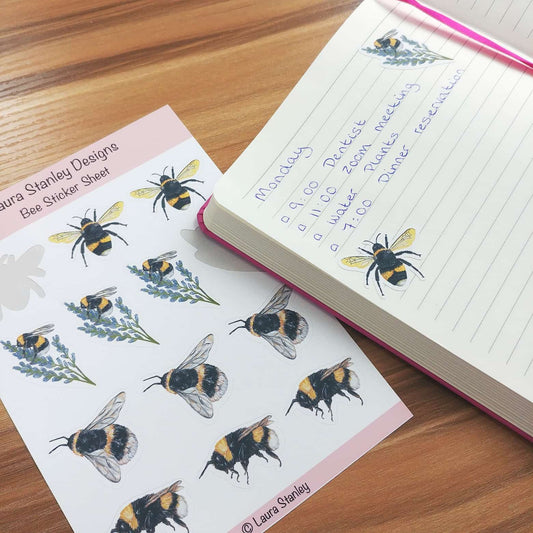 Laura Stanley Designs
Bee Sticker Sheet
© Laura Stanley
Monday
9:00 Dentist
11:00 zoom meeting
Water Plants
7:00 Dinner reservation